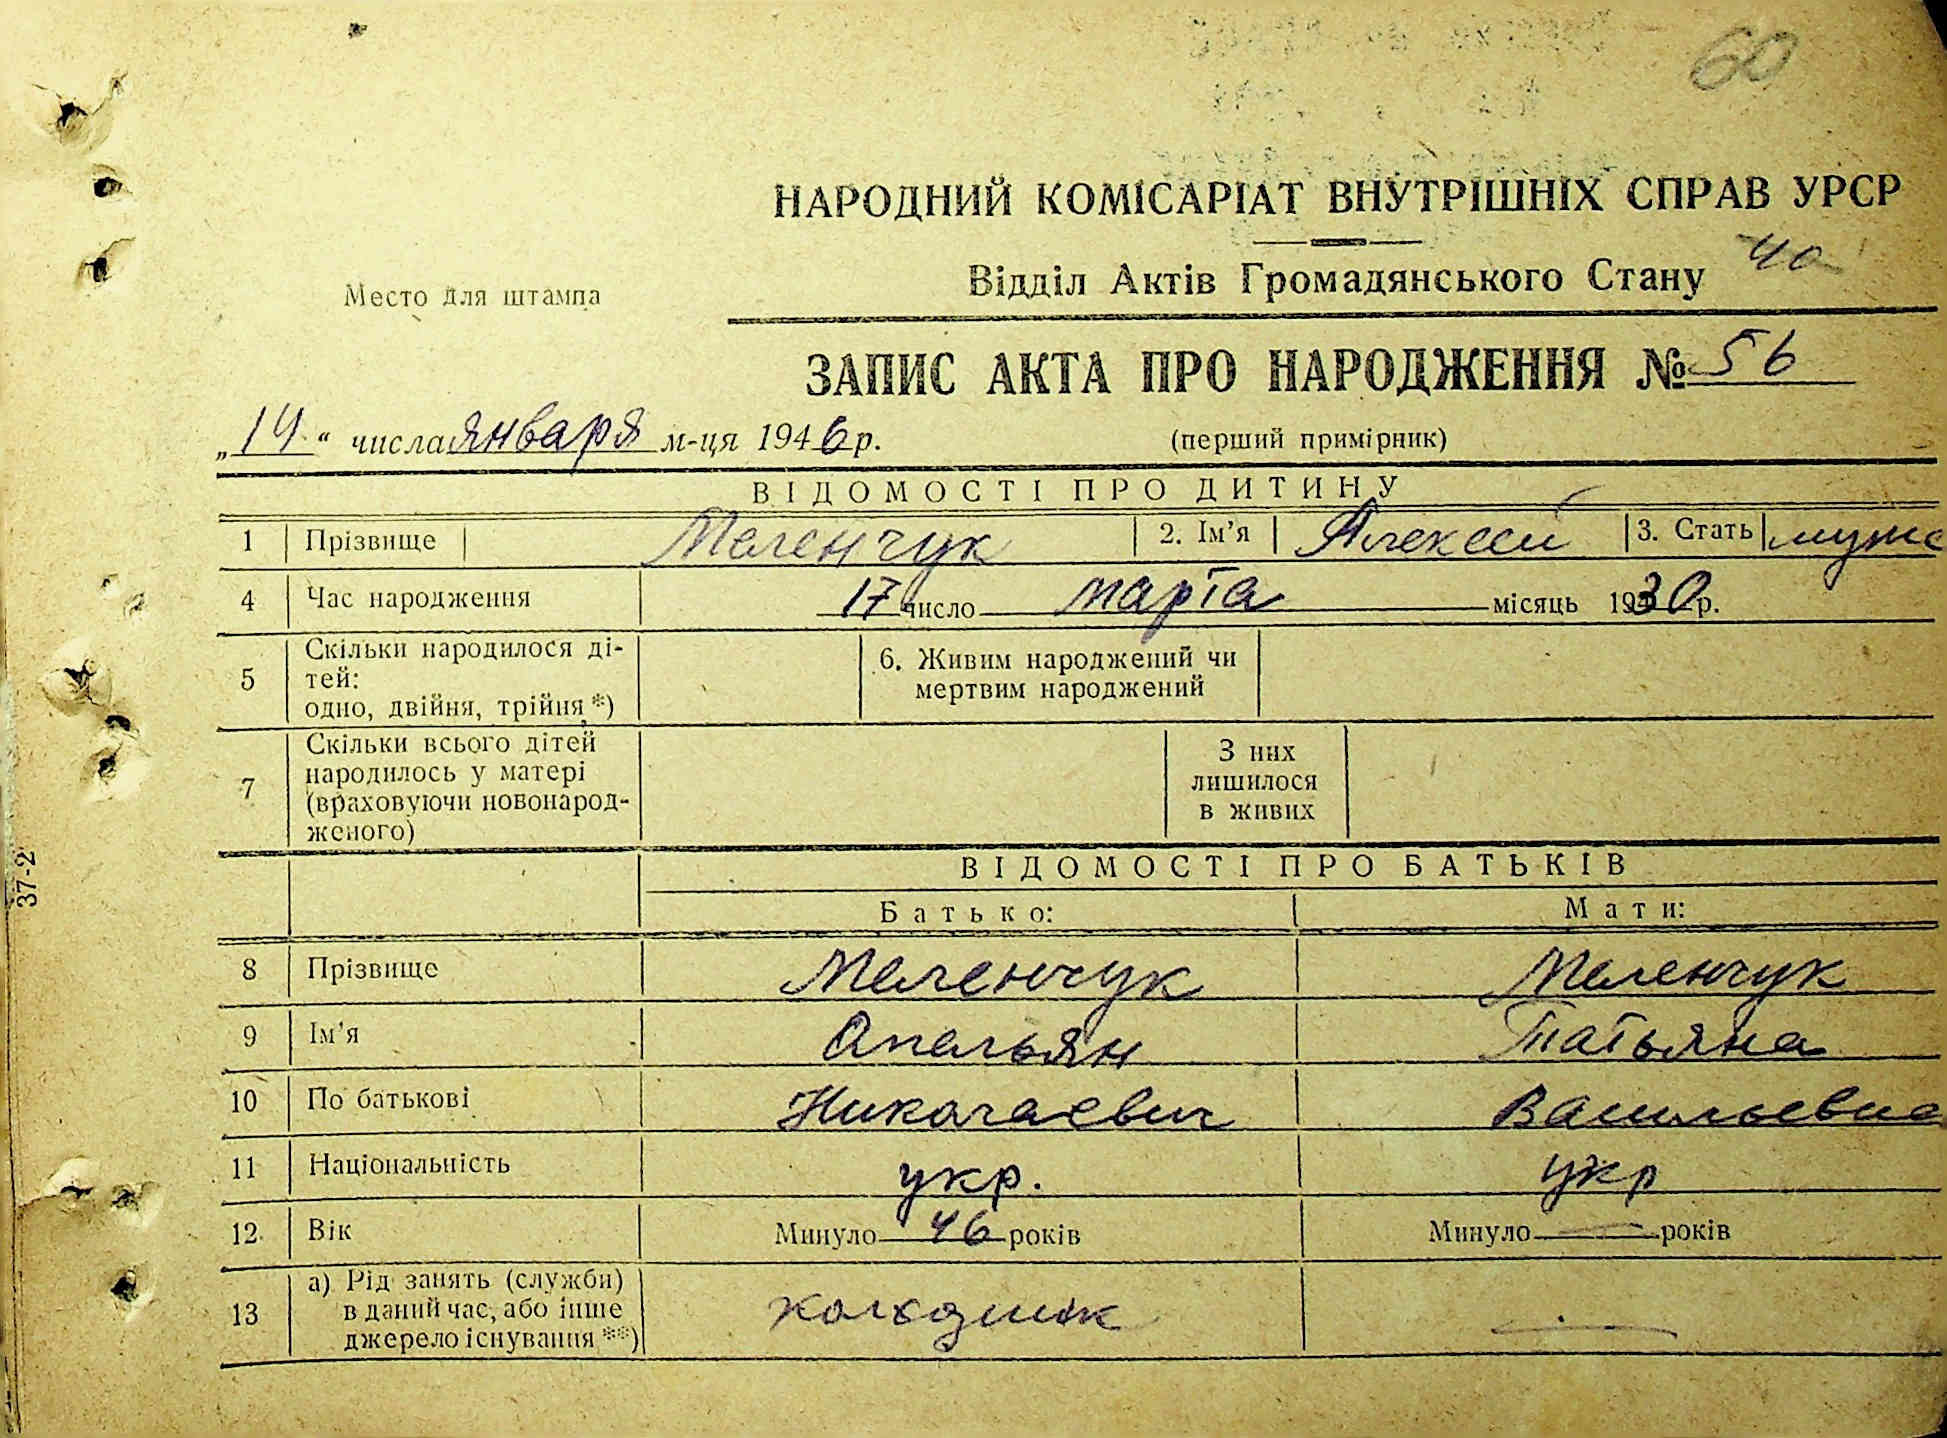 60
НАРОДНИЙ КОМІСАРІАТ ВНУТРІШНІХ СПРАВ УРСР
Место для штампа
Відділ Актів Громадянського Стану 40
ЗАПИС АКТА ПРО НАРОДЖЕННЯ № 56
„14“ числа января м-ця 1946 р. (перший примірник)
ВІДОМОСТІ ПРО ДИТИНУ
1 Прізвище Меленчук 2. Ім’я Алексей 3. Стать муже
4 Час народження 17 число марта місяць 1930 р.
5 Скільки народилося ді-
тей:
одно, двійня, трійня *)
6. Живим народжений чи
мертвим народжений
7 Скільки всього дітей
народилось у матері
(враховуючи новонарод-
женого)
З них
лишилося
в живих
ВІДОМОСТІ ПРО БАТЬКІВ
Батько: Мати:
8 Прізвище Меленчук Меленчук
9 Ім’я Омельян Татьяна
10 По батькові Николаевич Васильевна
11 Національність укр. укр
12. Вік Минуло 46 років Минуло — років
13 а) Рід занять (служби)
в даний час, або інше
джерело існування **)
колхозник —
37-2